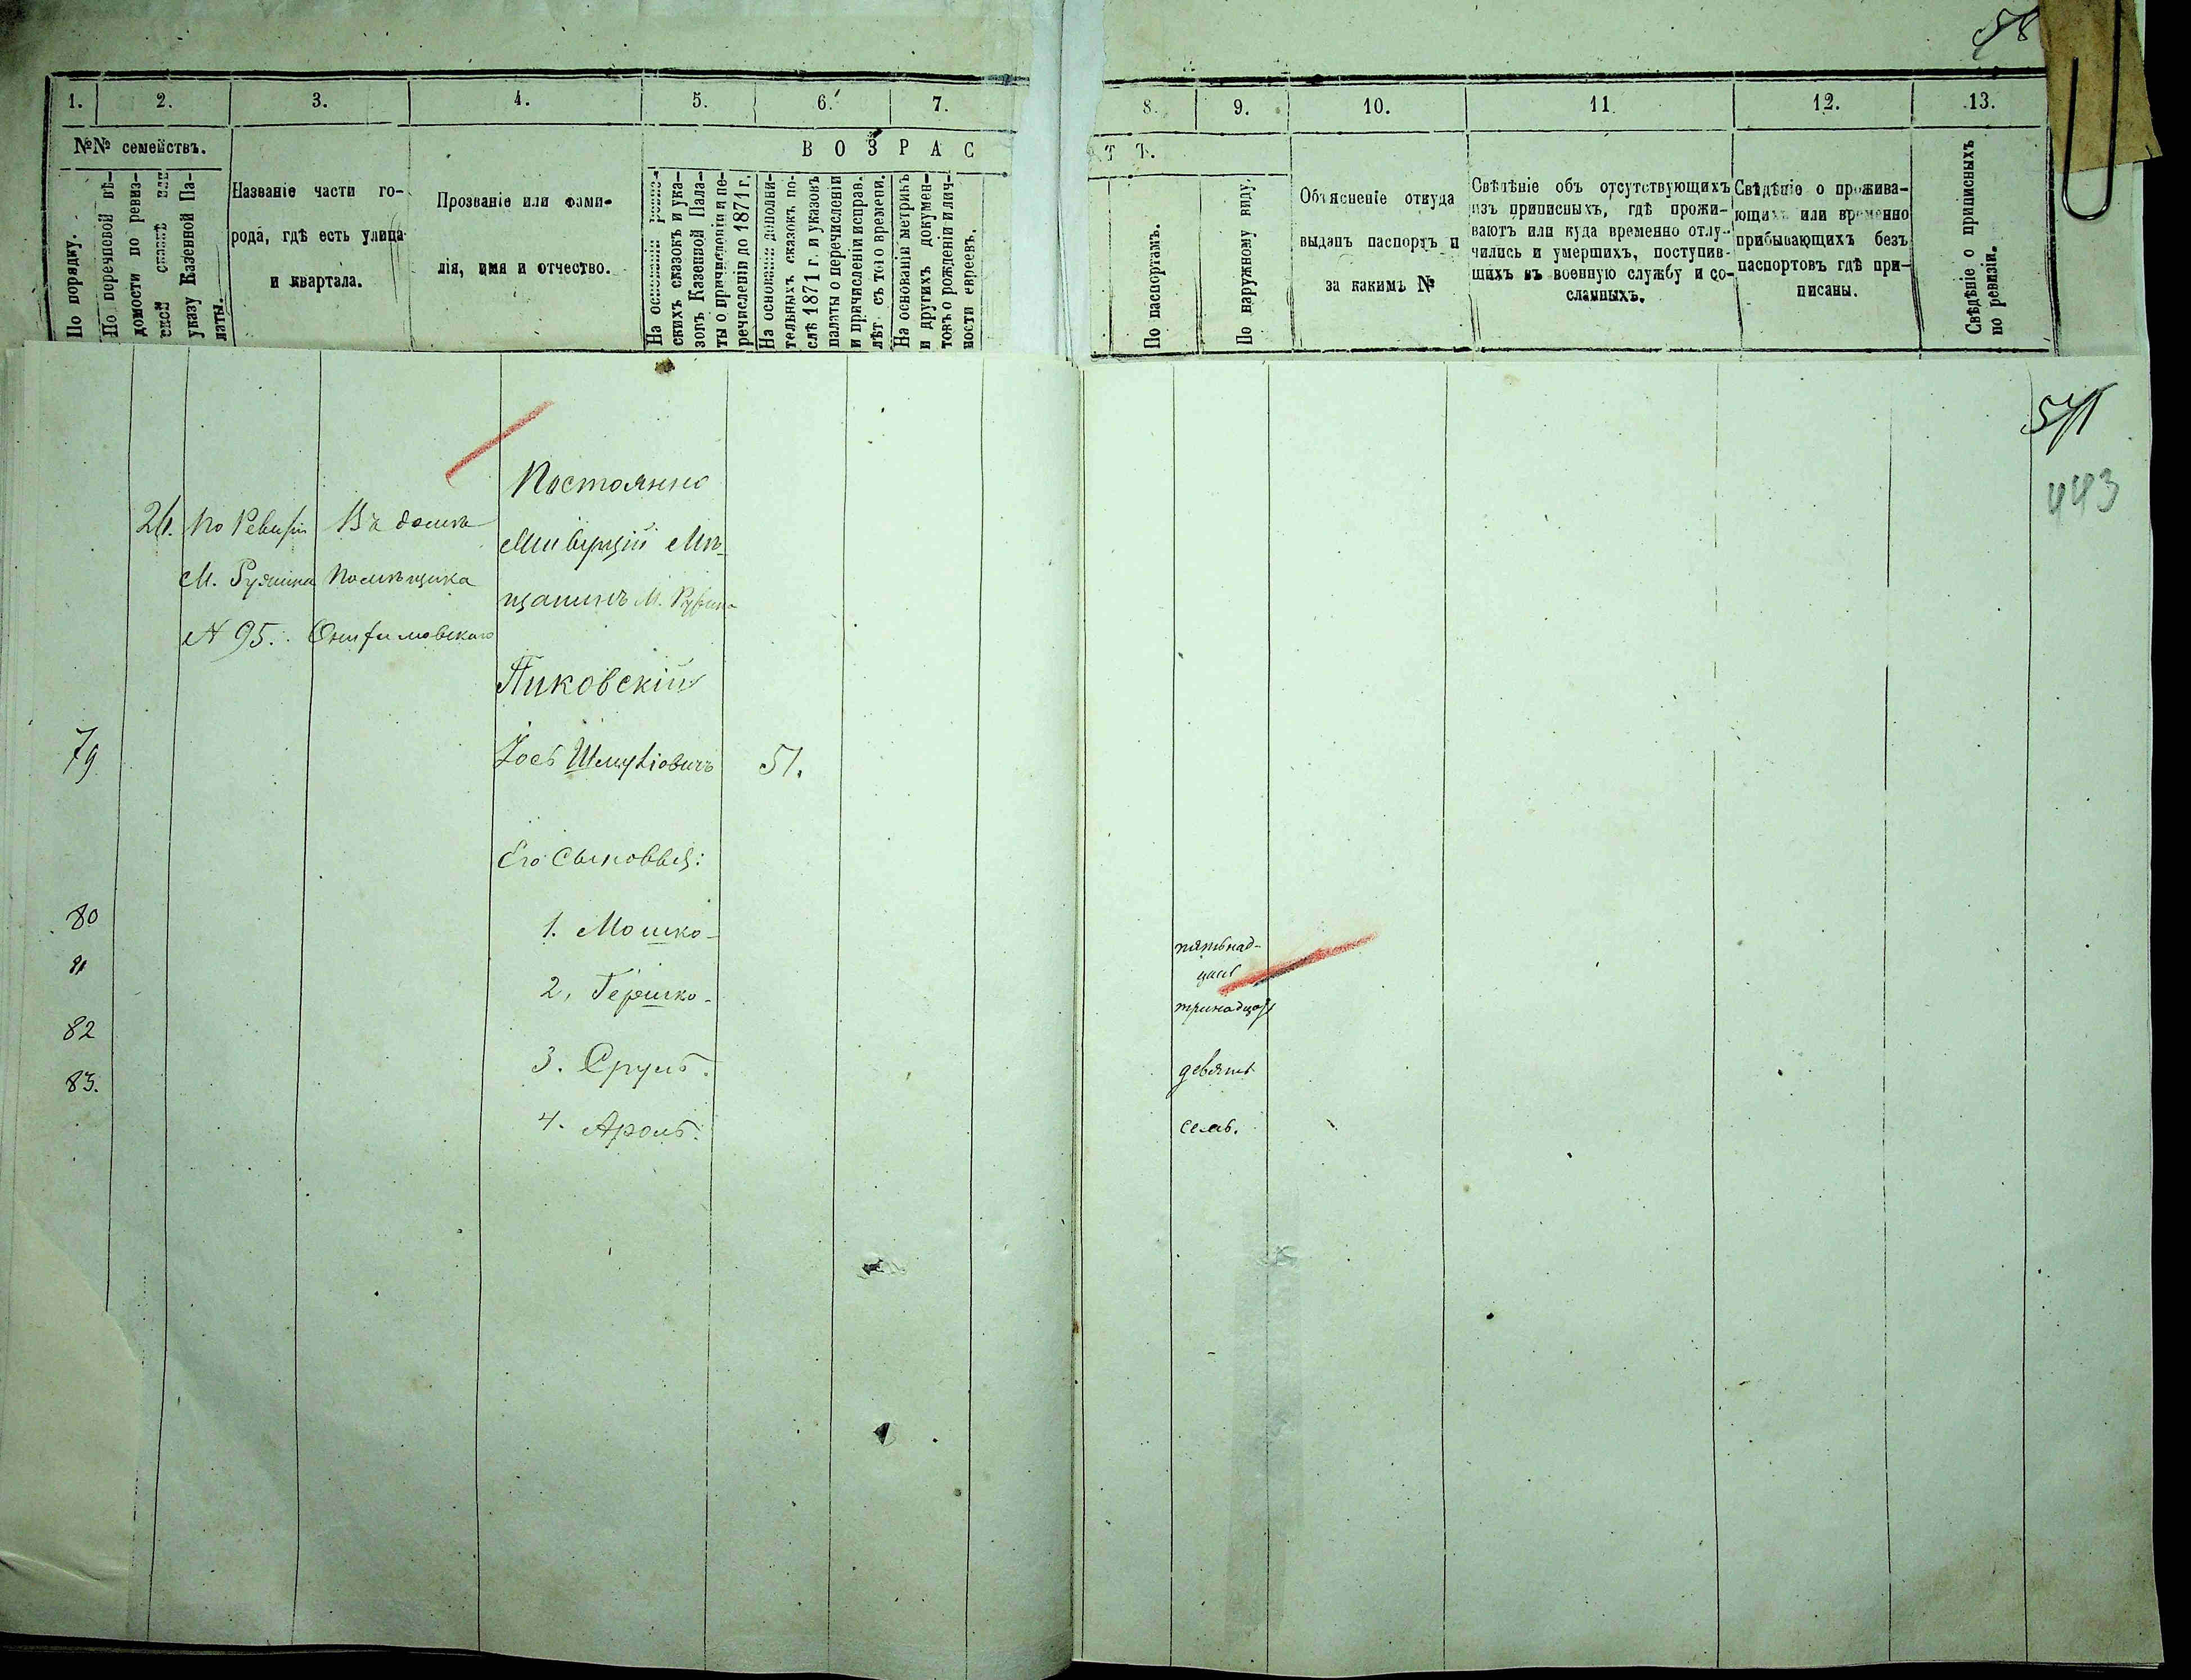 58
1. 2. 3. 4. 5. 6. 7. 8. 9. 10. 11. 12. 13.
№№ семействъ.
По порядку.
По перечневой вѣ-
домости по ревиз-
ской сказкѣ или
указу Казенной Па-
латы.
Названіе части го-
рода, гдѣ есть улица
и квартала.
Прозваніе или фами-
лія, имя и отчество.
ВОЗРАСТЪ.
На основаніи ревиз-
скихъ сказокъ и ука-
зовъ Казенной Пала-
ты о причисленіи и пе-
речисленіи до 1871 г.
На основаніи дополни-
тельныхъ сказокъ по-
слѣ 1871 г. и указовъ
палаты о перечисленіи
и причисленіи исправ.
лѣт съ того времени.
На основаніи метрикъ
и другихъ докумен-
товъ о рожденіи и лич-
ности евреевъ.
По паспортамъ.
По наружному виду.
Объясненіе откуда
выданъ паспортъ и
за какимъ №
Свѣдѣніе объ отсутствующихъ
изъ приписныхъ, гдѣ прожи-
ваютъ или куда временно отлу-
чились и умершихъ, поступив-
шихъ въ военную службу и со-
сланныхъ.
Свѣдѣніе о прожива-
ющихъ или временно
прибывающихъ безъ
паспортовъ гдѣ при-
писаны.
Свѣдѣніе о приписныхъ
по ревизіи.
443
Постоянно
26. По Ревизіи Въ домѣ
Мѣ-
М. Помѣщика
щанинъ М.
№ 95.
Пиковскій
79 Іось Шмулiовичъ 51.
Его Сыновья:
80 1. Мошко пятьнад-
цать
81 2. Гершко тринадцать
82 3. Сруль девять
83. 4. Аронъ. семь.